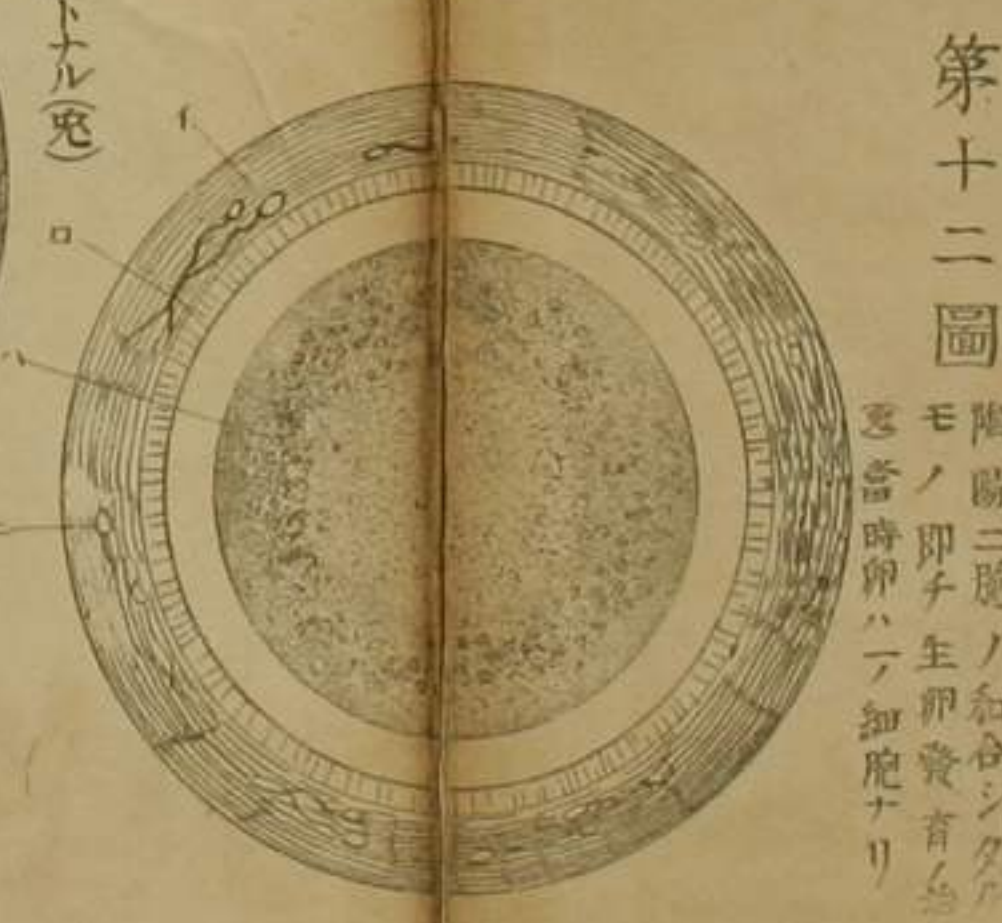 第十二圖
陰陽二胞ノ和合シタル
モノ即チ生卵發育ノ始
(兎)當時卵ハ一ノ細胞ナリ
イ
ロ
ハ
トナル(兎)